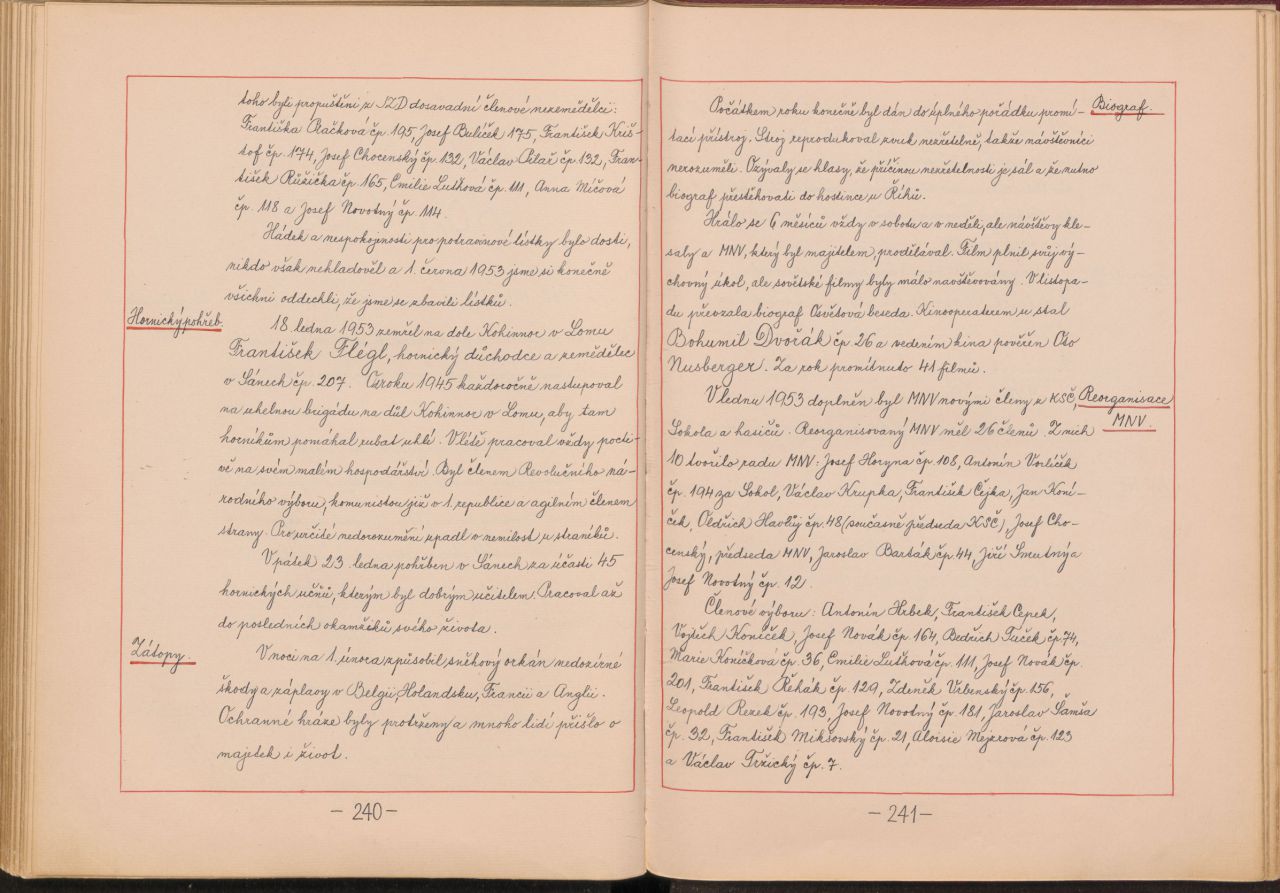 toho byli propuštěni z JZD dosavadní členové nezemědělci:
Františka Račková čp. 195, Josef Bulíček 175, František Kriš-
tof čp. 174, Josef Chocenský čp. 132, Václav Pilař čp. 132, Fran-
tišek Růžička čp. 165, Emilie Luťková čp. 111, Anna Mičová
čp. 118 a Josef Novotný čp. 114.
Hádek a nespokojnosti pro potravinové lístky bylo dosti,
nikdo však nehladověl a 1. června 1953 jsme si konečně
všichni oddechli, že jsme se zbavili lístků.
Hornický pohřeb.
18. ledna 1953 zemřel na dole Kohinnor v Lomu
František Flégl, hornický důchodce a zemědělec
v Sánech čp. 207. Od roku 1945 každoročně nastupoval
na uhelnou brigádu na důl Kohinnor v Lomu, aby tam
horníkům pomáhal rubat uhlí. V létě pracoval vždy pocti-
vě na svém malém hospodářství. Byl členem Revolučního ná-
rodního výboru, komunistou již v 1. republice a agilním členem
strany. Pro určité nedorozumění upadl v nemilost u straníků.
V pátek 23. ledna pohřben v Sánech za účasti 45
hornických učňů, kterým byl dobrým učitelem. Pracoval až
do posledních okamžiků svého života.
Zátopy.
V noci na 1. února způsobil sněhový orkán nedozírné
škody a záplavy v Belgii, Holandsku, Francii a Anglii.
Ochranné hráze byly protrženy a mnoho lidí přišlo o
majetek i život.
– 240 –
Biograf.
Počátkem roku konečně byl dán do úplného pořádku promí-
tací přístroj. Stroj reprodukoval zvuk nezřetelně, takže návštěvníci
nerozuměli. Ozývaly se hlasy, že příčinou nezřetelnosti je sál a že nutno
biograf přestěhovati do hostince u Říhů.
Hrálo se 6 měsíců vždy v sobotu a v neděli, ale návštěvy kle-
saly a MNV, který byl majitelem, prodělával. Film plnil svůj vý-
chovný úkol, ale sovětské filmy byly málo navštěvovány. V listopa-
du převzala biograf Osvětová beseda. Kinooperaterem se stal
Bohumil Dvořák čp. 26 a vedením kina pověřen Oto
Nusberger. Za rok promítnuto 41 filmů.
Reorganisace
MNV.
V lednu 1953 doplněn byl MNV novými členy z KSČ,
Sokola a hasičů. Reorganisovaný MNV měl 26 členů. Z nich
10 tvořilo radu MNV: Josef Horyna čp. 108, Antonín Vorlíček
čp. 194 za Sokol, Václav Krupka, František Čejka, Jan Koní-
ček, Oldřich Havlůj čp. 48 (současně předseda KSČ), Josef Cho-
censký, předseda MNV, Jaroslav Barták čp. 44, Jiří Smutný a
Josef Novotný čp. 12.
Členové výboru: Antonín Hrbek, František Cepek,
Vojtěch Koníček, Josef Novák čp 164, Bedřich Tuček čp. 74,
Marie Koníčková čp. 36, Emilie Luťková čp. 111, Josef Novák čp.
201, František Řehák čp. 129, Zdeněk Vrbenský čp. 156,
Leopold Rezek čp. 193, Josef Novotný čp. 181, Jaroslav Šamša
čp. 32, František Mikšovský čp. 21, Aloisie Mejzrová čp. 123
a Václav Tržický čp. 7.
– 241 –